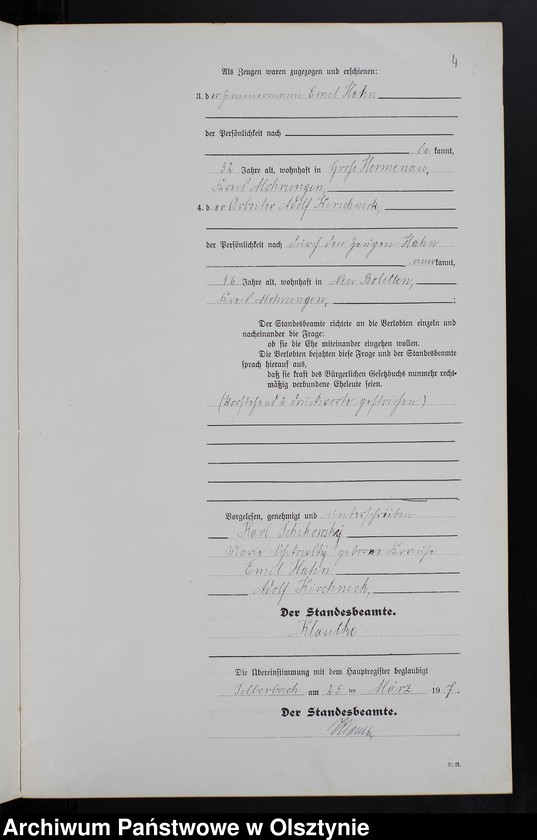 4
Als Zeugen waren zugezogen und erschienen:
3. der Zimmermann Emil Hahn
der Persönlichkeit nach
be kannt,
32 Jahre alt, wohnhaft in Groß Hermenau,
Kreis Mohrungen,
4. der Arbeiter Adolf Kirschnick,
der Persönlichkeit nach durch den Zeugen Hahn
anerkannt,
46 Jahre alt, wohnhaft in Neu Bolitten,
Kreis Mohrungen, ;
Der Standesbeamte richtete an die Verlobten einzeln und
nacheinander die Frage:
ob sie die Ehe miteinander eingehen wollen.
Die Verlobten bejahten diese Frage und der Standesbeamte
sprach hierauf aus,
daß sie kraft des Bürgerlichen Gesetzbuchs nunmehr recht-
mäßig verbundene Eheleute seien.
(Vorstehend Druckworte gestrichen)
Vorgelesen, genehmigt und unterschrieben
Karl
Marie geborne Krause
Emil Hahn
Adolf Kirschnick,
Der Standesbeamte.
Klautke
Die Übereinstimmung mit dem Hauptregister beglaubigt
Silberbach am 25 ten März 19 7.
Der Standesbeamte.
N.-R.
Archiwum Państwowe w Olsztynie